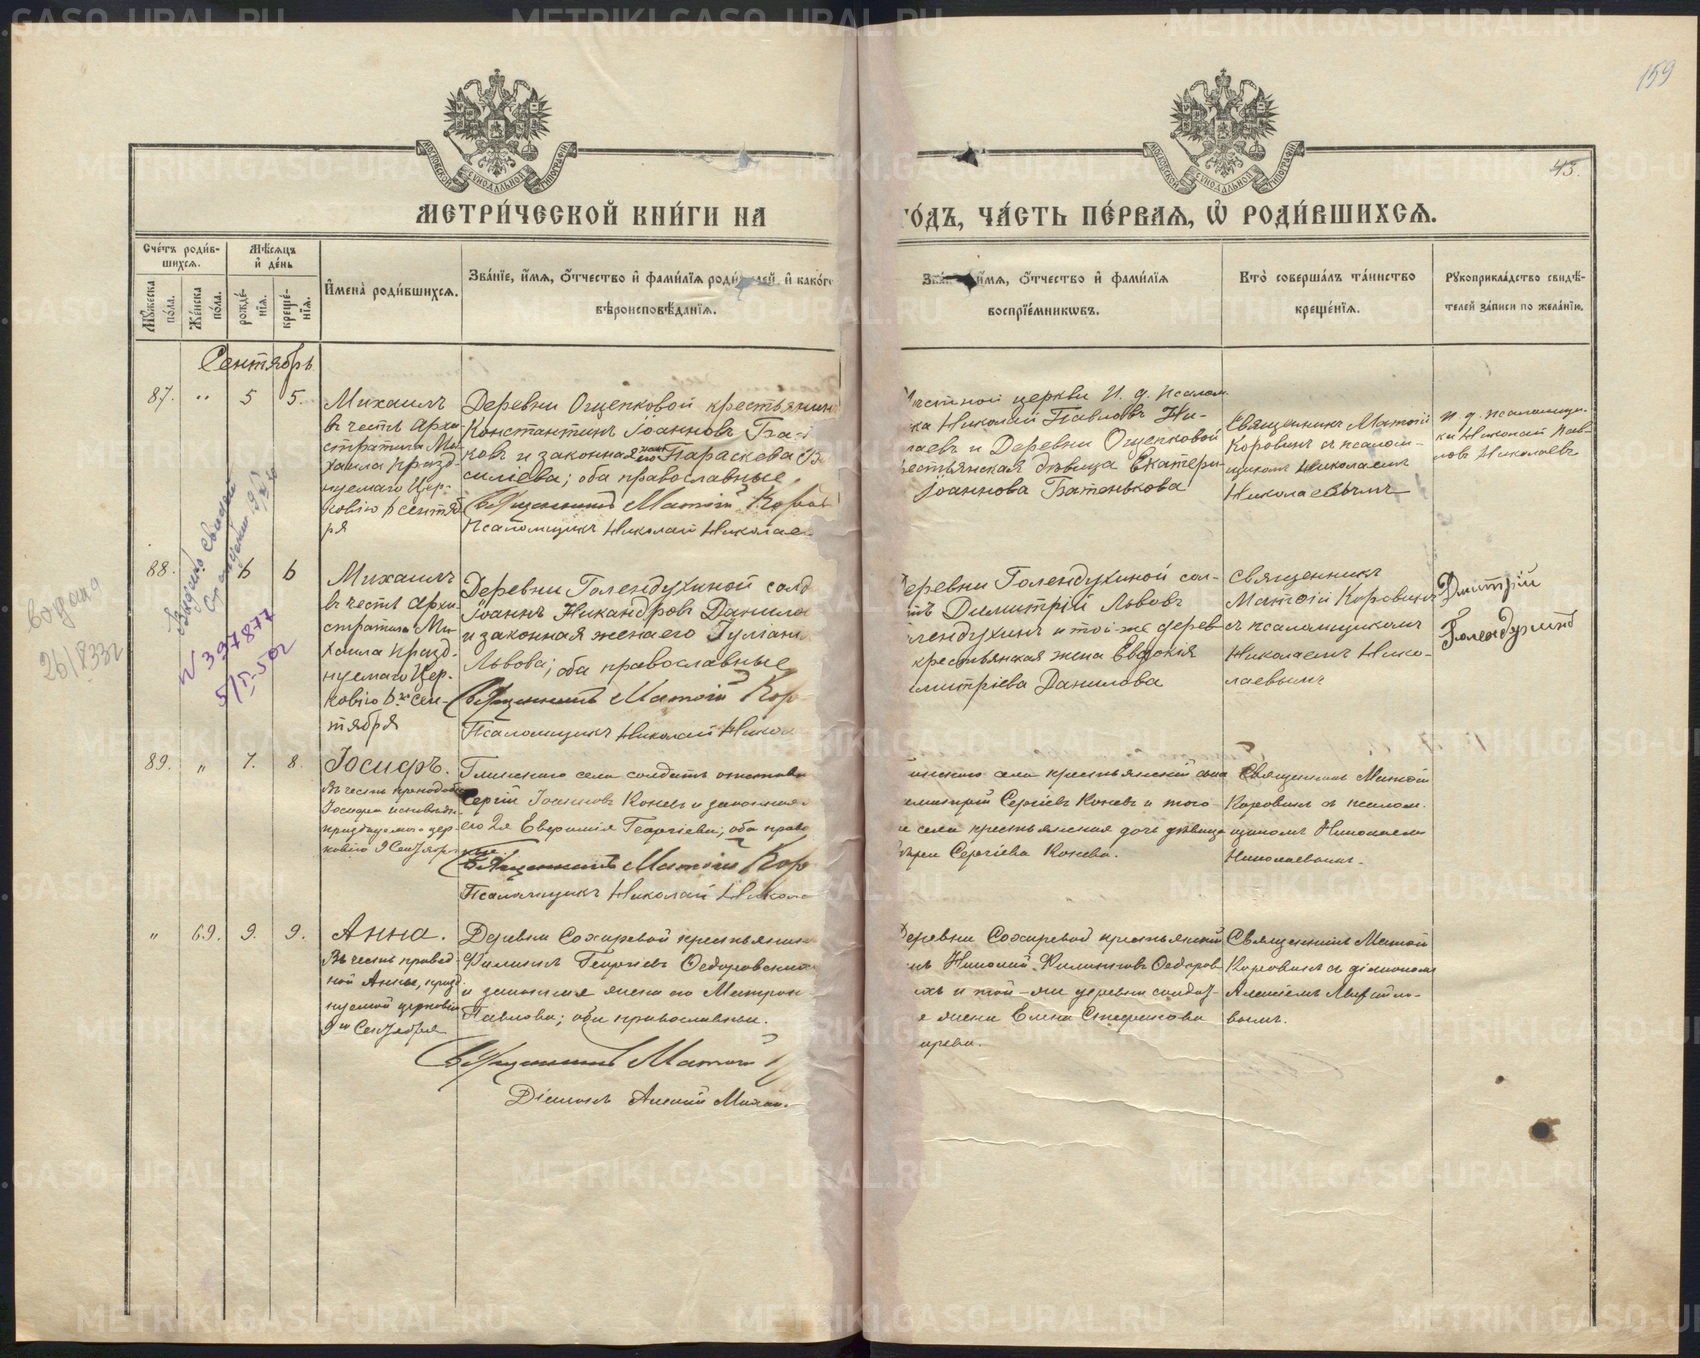 159
43.
МОСКОВСКОЙ СУНОДАЛЬНОЙ ТИПОГРАФІИ
МОСКОВСКОЙ СУНОДАЛЬНОЙ ТИПОГРАФІИ
МЕТРИ́ЧЕСКОЙ КНИ́ГИ НА
ГО́ДЪ, ЧА́СТЬ ПЕ́РВАЯ, Ѡ҆ РОДИ́ВШИХСЯ.
Сче́тъ роди́в-
шихся.
Мѣ́сяцъ
и҆ де́нь
Му́жеска
по́ла.
Же́нска
по́ла.
рожде́-
нія.
креще́-
нія.
И҆мена̀ роди́вшихся.
Зва́нїе, и҆́мя, ѻ҆́тчество и҆ фами́лїя роди́телей, и҆ како́го
вѣроисповѣ́данїя.
и҆́мя, ѻ҆́тчество и҆ фами́лїя
воспрїе́мниковъ.
Кто̀ соверша́лъ та́инство
креще́нїя.
Рꙋкоприкла́дство свидѣ́-
телей за́писи по жела́нїю.
Сентябрь
87. " 5 5.
Михаилъ
въ честь Архи
стратига Ми
хаила празд-
нуемаго Цер-
ковію 6 сентяб
ря
Деревни Ощепковой крестьянин
Константинъ Іоанновъ Ба-
ковъ и законная жена его Параскева Ва
силіева; оба православные
Священникъ Матѳій Коров
Псаломщикъ Николай Николае
церкви И. д. псалом
ка Николай Павловъ Ни-
лаевъ и Деревни Ощепковой
рестьянская дѣвица Екатери
Іоаннова Батенькова
Священникъ Матѳій
Коровинъ съ псалом-
щикомъ Николаемъ
Николаевымъ
И. д. псаломщи-
ка Николай Пав-
ловъ Николаевъ
88. 6 6
Михаилъ
въ честь Архи
стратига Ми-
хаила празд-
нуемаго Цер-
ковію 6.го сен-
тября
Деревни Голендухиной солд
Іоаннъ Никандровъ Данило
и законная жена его Іуліані
Львова; оба православные
Священникъ Матѳій Кор
Псаломщикъ Николай Никол
Деревни Голендухиной сол-
тъ Димитрій Львовъ
лендухинъ и той-же дерев
крестьянская жена Евдокія
имитріева Данилова
Священникъ
Матѳій Коровинъ
съ псаломщикомъ
Николаемъ Нико-
лаевымъ
Дмитрій
Голендухинъ
Выдано
№ 397877
5/V-50г
26/ 33г
89. " 7. 8.
Іосифъ.
Въ честь преподобн
Іосифа
празднуемаго цер-
ковію 9 Сентября
Глинскаго села солдатъ отставн
Сергій Іоанновъ Коневъ и законная
его 2я Евфимія Георгіева; оба право
Священникъ Матѳій Кор
Псаломщикъ Николай Никола
линскаго села крестьянскій сынъ
имитрій Сергіевъ Коневъ и того-
е села крестьянская дочь дѣвица
Сергіева Конева.
Священникъ Матѳій
Коровинъ съ псалом-
щикомъ Николаемъ
Николаевымъ.
" 69. 9. 9.
Анна.
Въ честь правед-
ной Анны, празд
нуемой церковію
9 го Сентября
Деревни Сохаревой крестьянин
Филиппъ Георгіевъ Ѳедоровскихъ
и законная жена его Матрона
Павлова; оба православные.
Священникъ Матѳій К
Діаконъ Алексій Михай
Деревни Сохаревой крестьянскій
нъ Николай Филипповъ Ѳедоров
ихъ и той-же деревни солдат-
я жена Елена Стефанова
арева.
Священникъ Матѳій
Коровинъ съ діакономъ
Алексіемъ Михайло-
вымъ.
METRIKI.GASO-URAL.RU